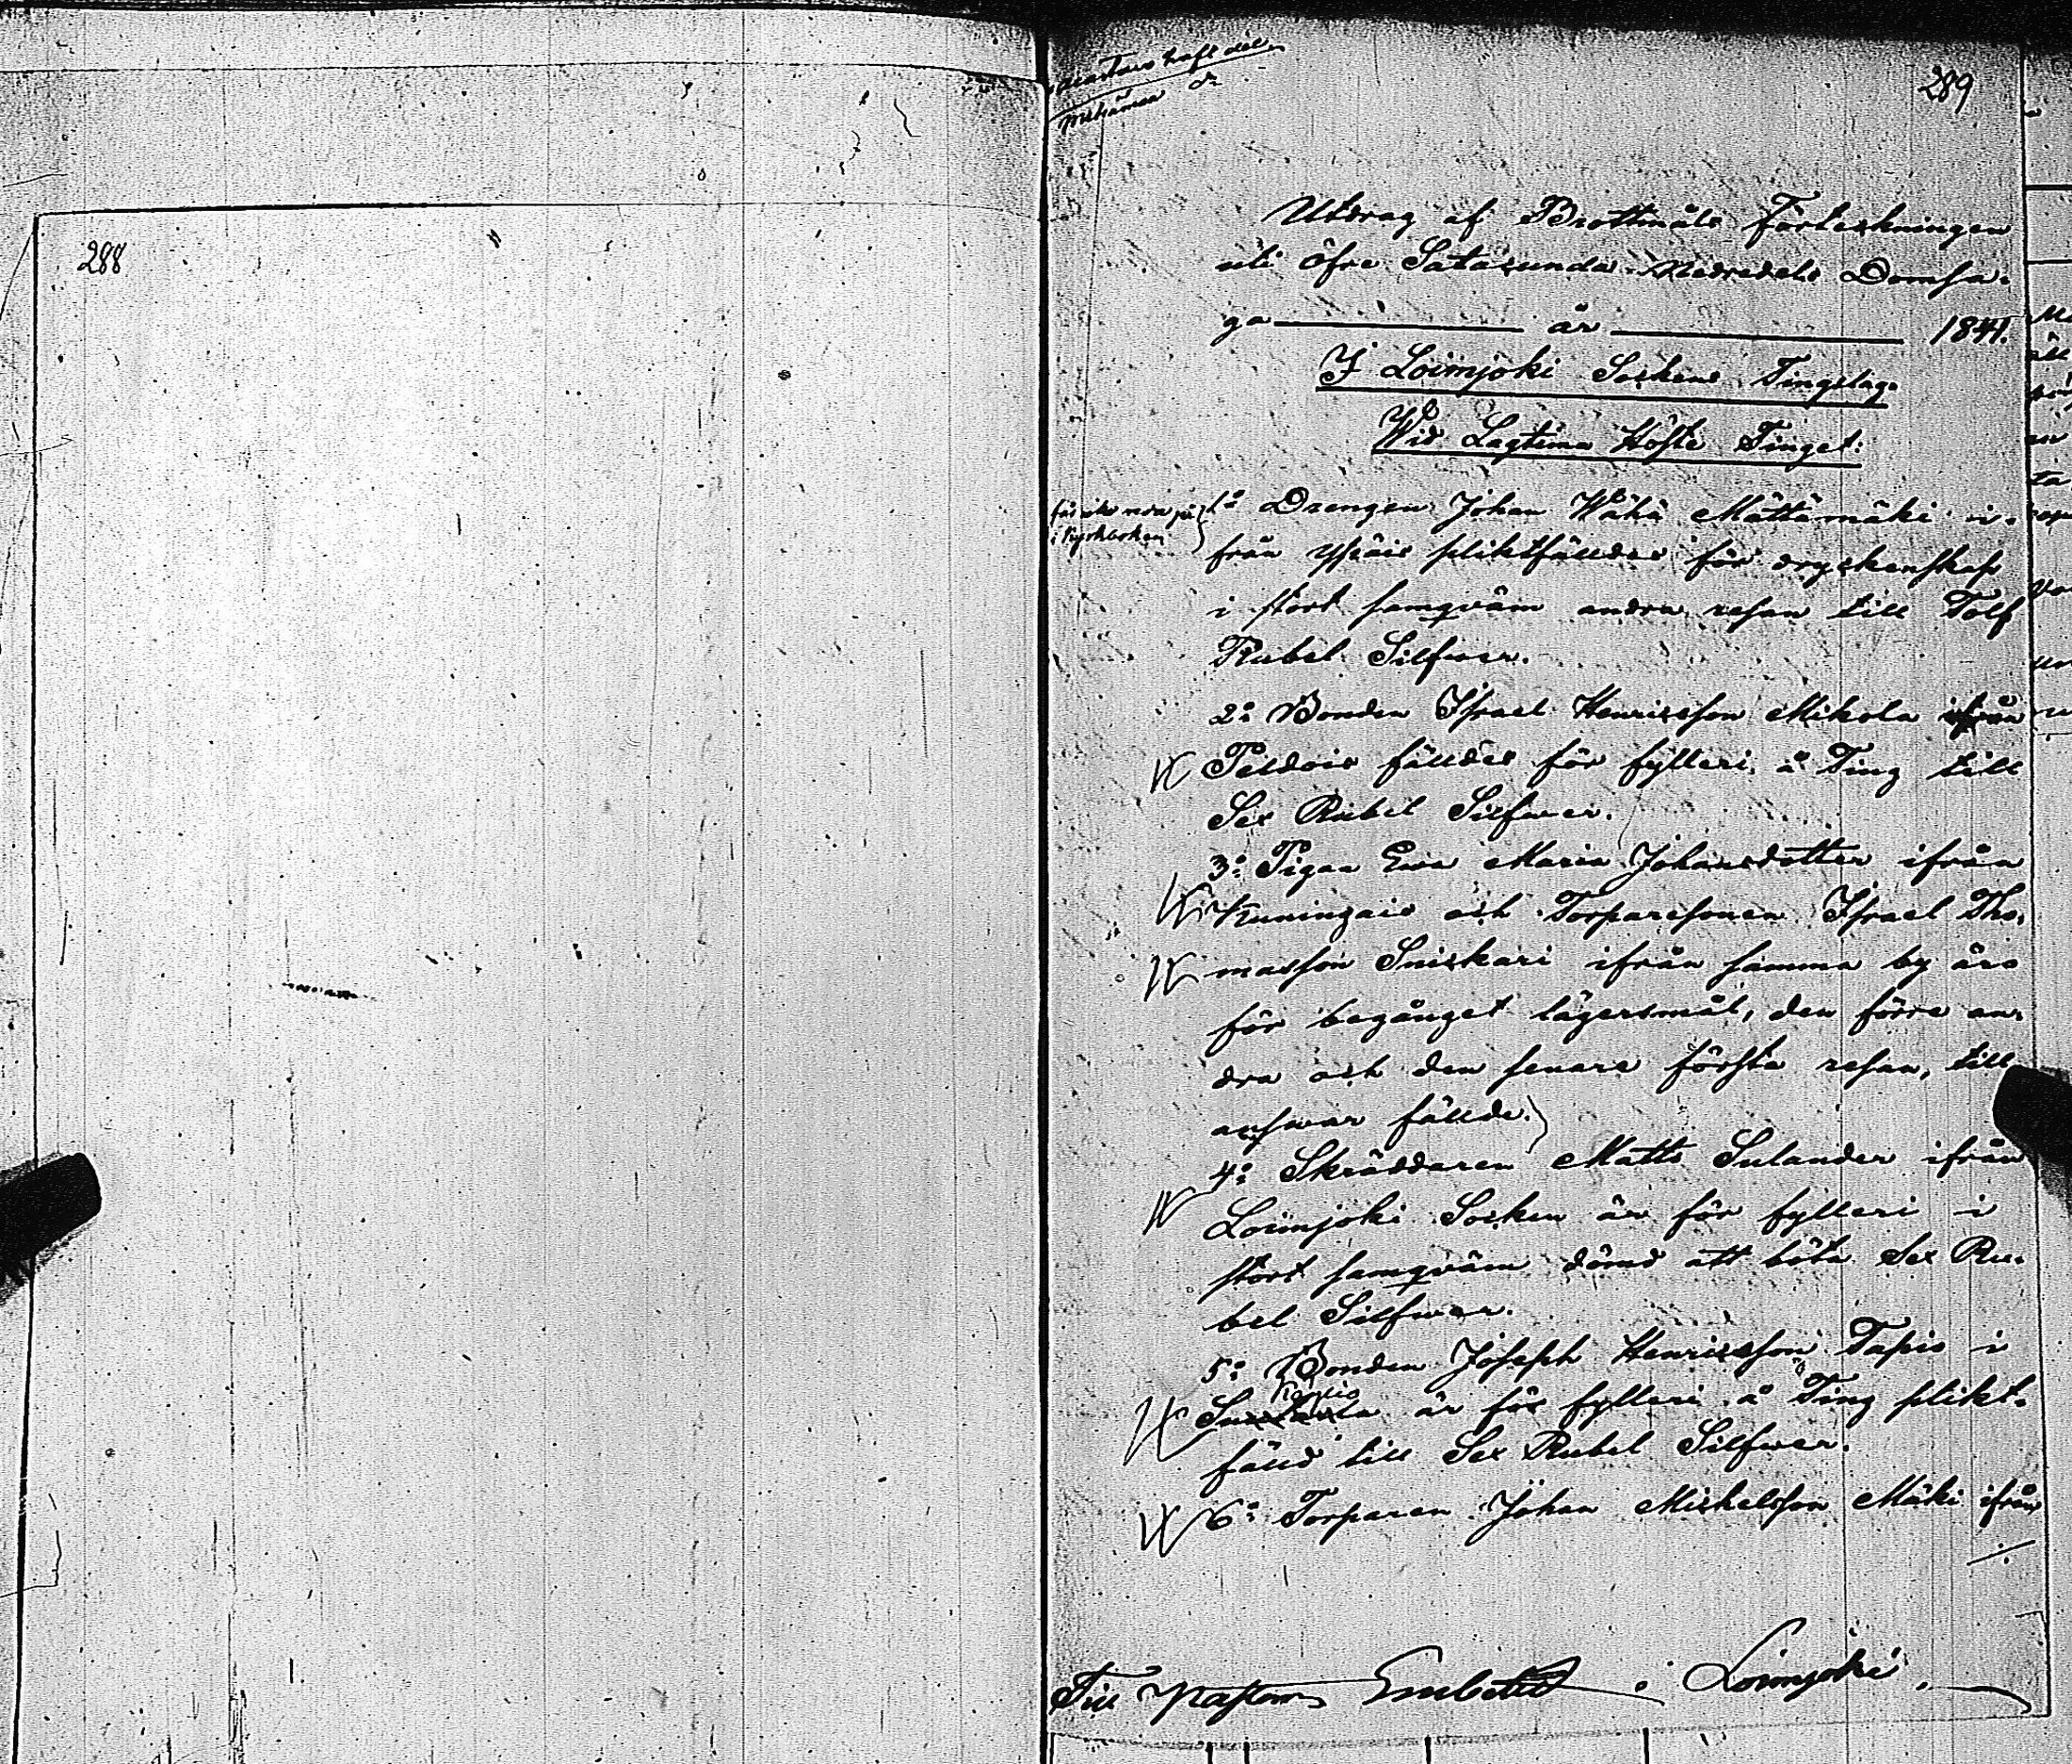 288
289
Utdrag af Brottmåls Förteckningen
uti Öfre Satacunda Nedredels Domsa-
ga år 1841.
I Loimjoki Sockens Tingslag.
Wid Lagtima Höste Tinget:
i Kyrkboken
1º Drengen Johan Wähä Mättämäki i-
från Ypäis pliktfälldes för dryckenskap
i stort samqväm andra resan till Tolf
Rubel Silfwer.
2º Bonden Israel Henricsson Mikola ifrån
Peldois fälldes för fylleri å Ting till
Sex Rubel Silfwer.
3º Pigan Ewa Maria Johansdotter ifrån
Kuningais och Torparesonen Israel Tho-
masson Snickari ifrån samma by äro
för begånget lägersmål, den förre an-
dra och den senare första resan, till
answar fällde.
4º Skräddaren Matts Sulander ifrån
Loimjoki Socken är för fylleri i
stort samqväm dömd att böta Sex Ru-
bel Silfwer.
5º Bonden Joseph Henricsson Tapio i
är för fylleri å Ting plikt-
fälld till Sex Rubel Silfwer.
6º Torparen Johan Michelsson Mäki ifrån
Till Pastors Embetet i Loimjoki.